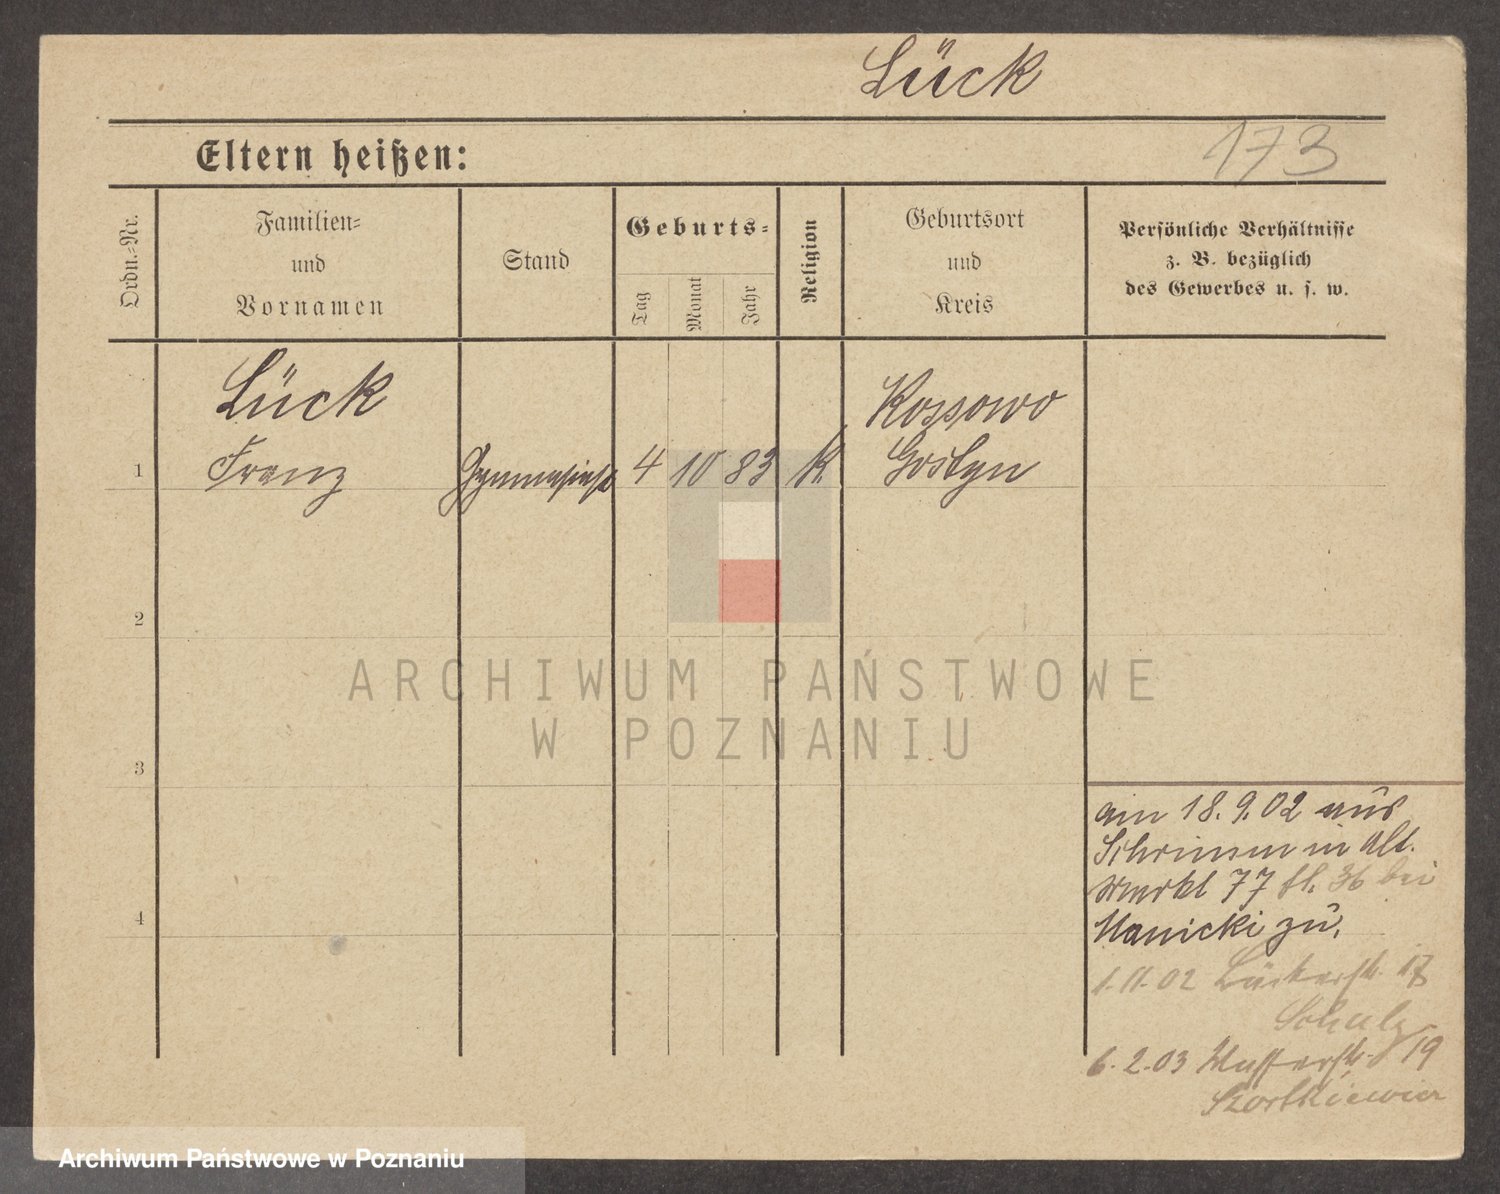 Lück
173
Eltern heißen:
Ordn.-Nr.
Familien-
und
Vornamen
Stand
Geburts-
Tag
Monat
Jahr
Religion
Geburtsort
und
Kreis
Persönliche Verhältnisse
z. B. bezüglich
des Gewerbes u. s. w.
Lück
Kossowo
1 Franz Gymnasiast 4 10 83 K Gostyn
2
3
4
am 18.9.02 aus
Schrimm in Alt.
Markt 77 bei
Manicki zu.
1.11.02 Bäckerstr. 17
Schulz
6.2.03 Wasserstr. 19
ARCHIWUM PAŃSTWOWE
W POZNANIU
Archiwum Państwowe w Poznaniu